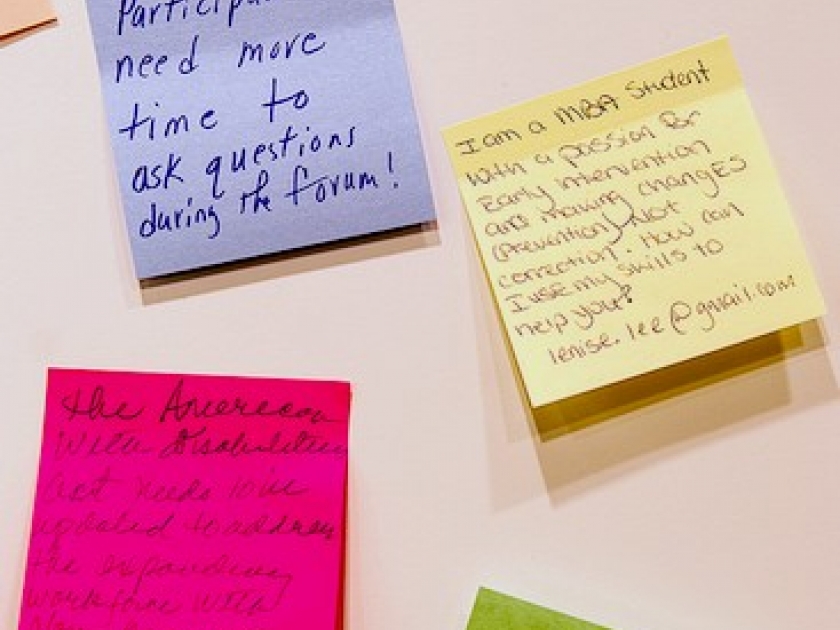 need more
time to
ask questions
during the forum!
I am a MBA Student
With a passion for
Early Intervention
and making changes
(Prevention) Not
correction. How can
I use my skills to
help you?
lenise.lee@gmail.com
the American
With Disabilities
act needs to be
updated to address
the expanding
workforce with